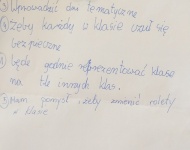 Wprowadzić dni tematyczne
Żeby każdy w klasie czuł się
bezpiecznie
będę godnie reprezentować klasę
na tle innych klas.
Mam pomysł, żeby zmienić rolety
w klasie